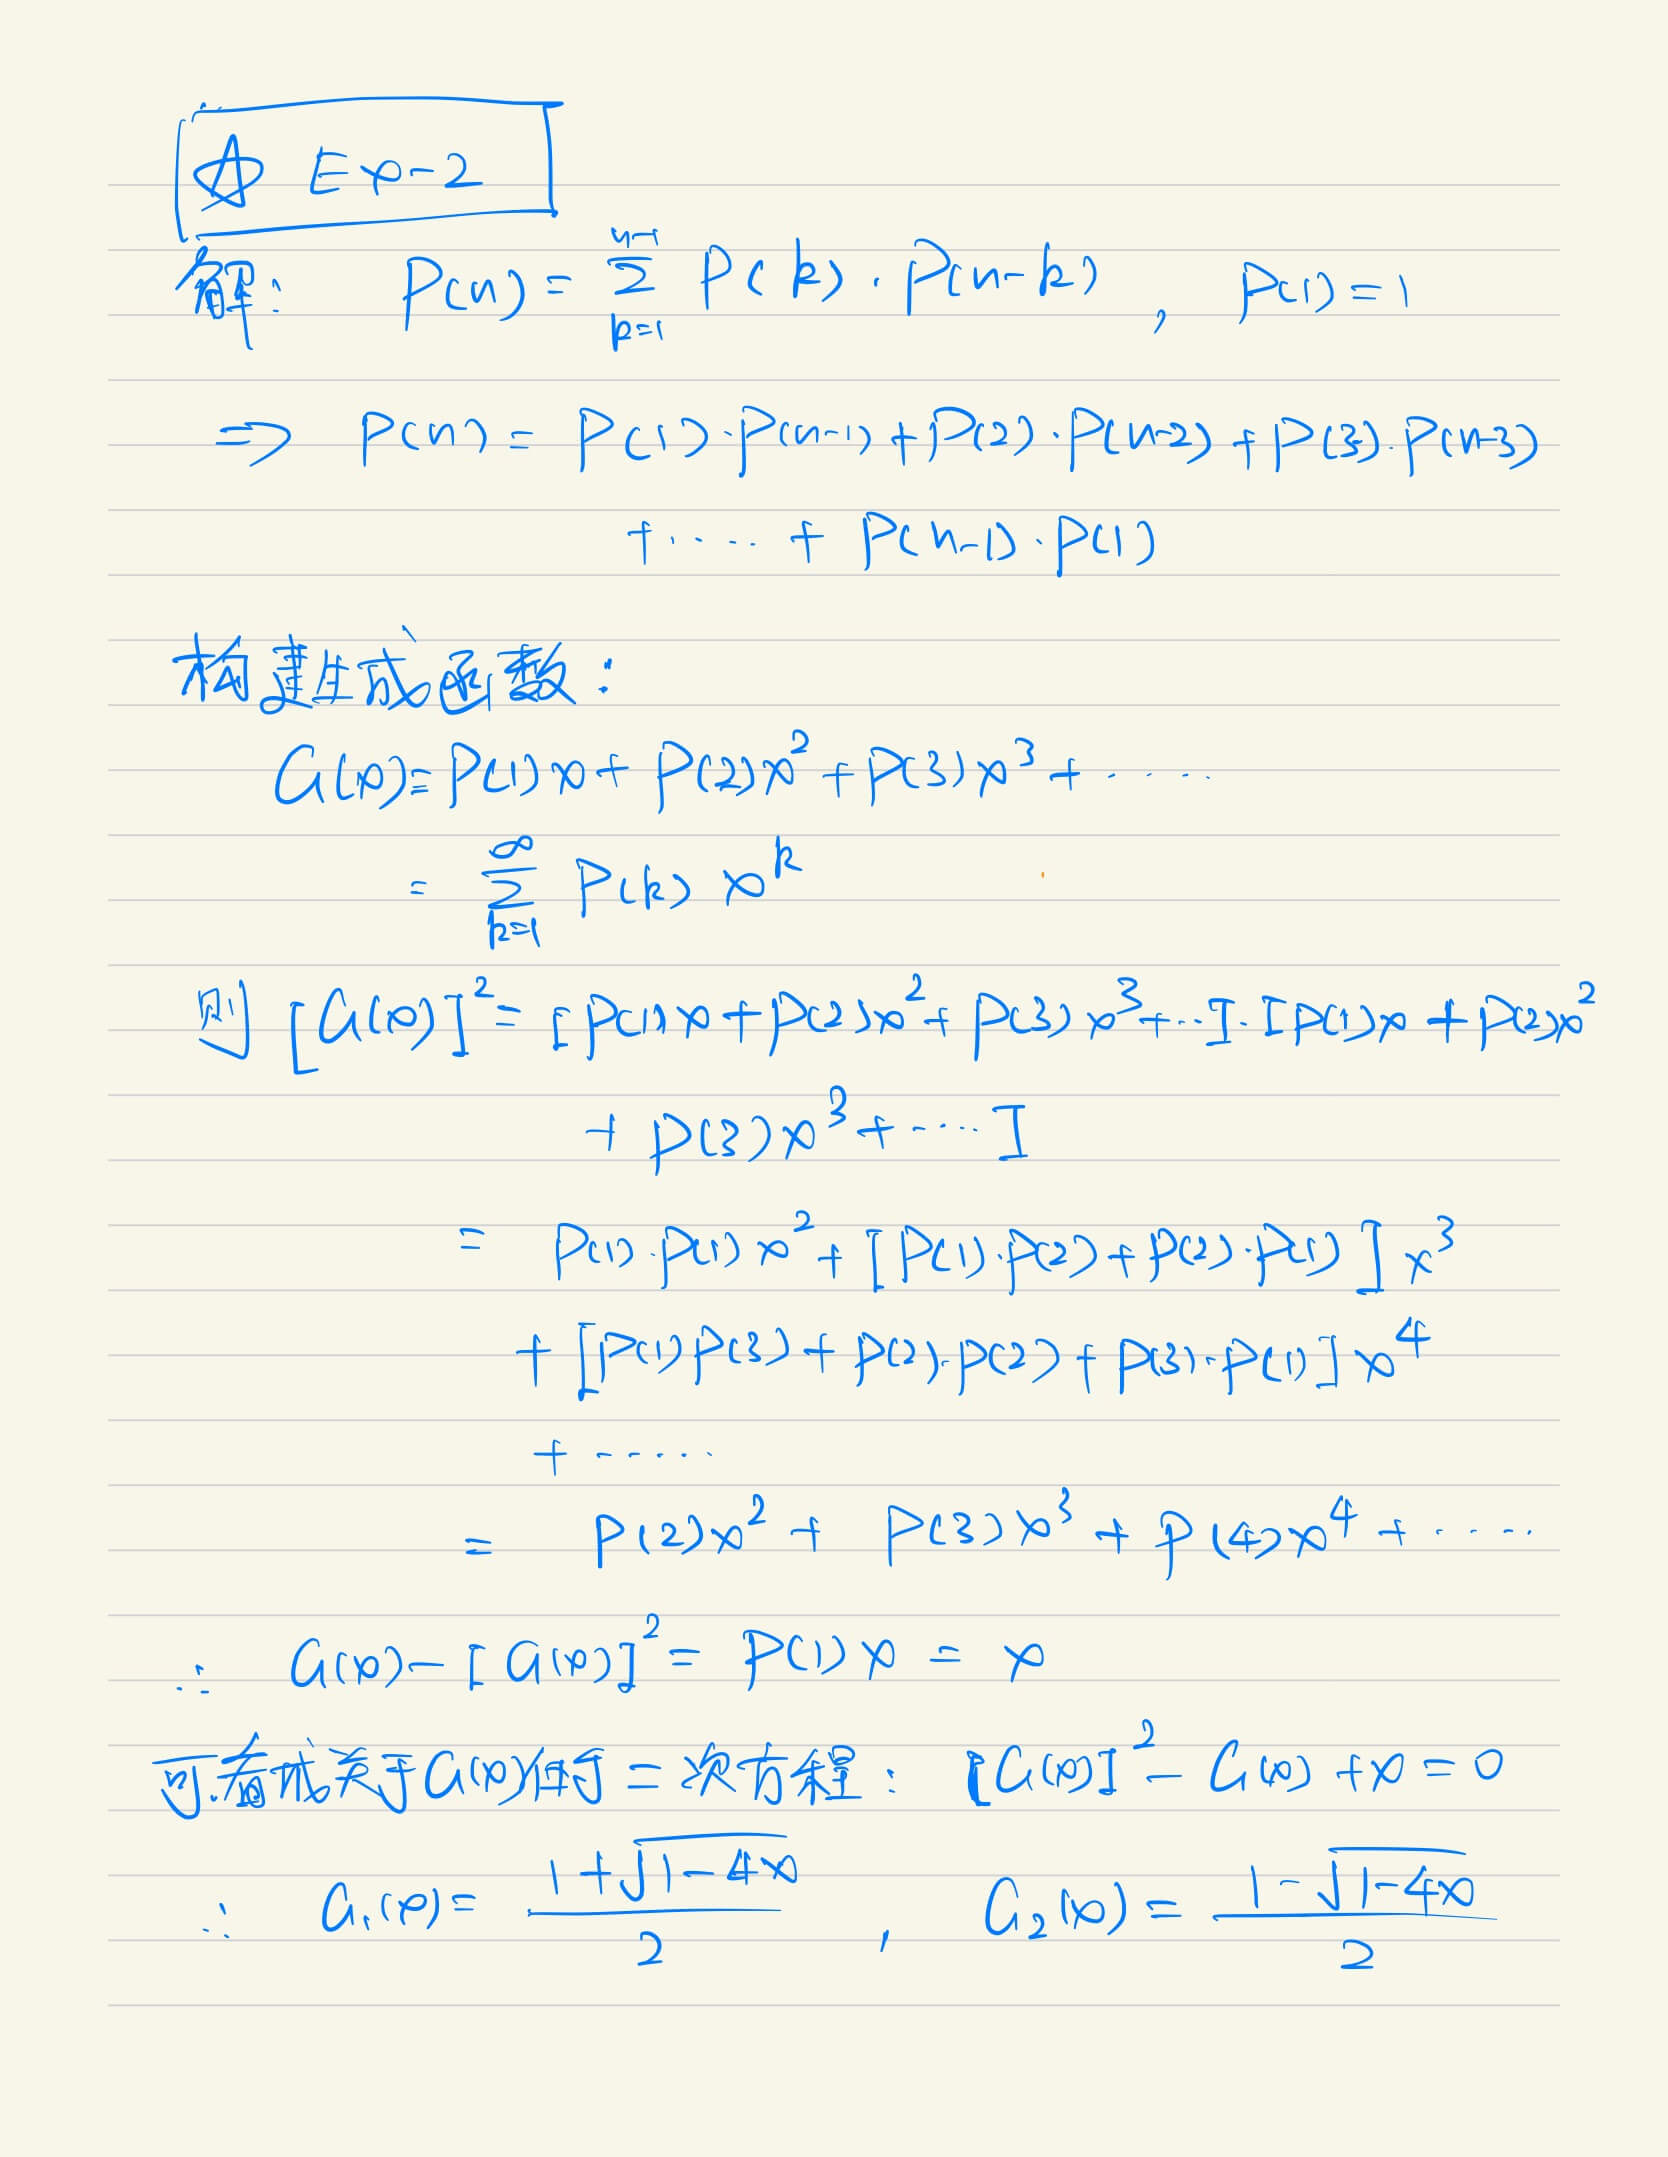 ☆ Ex-2
解: P(n) = \sum_{k=1}^{n-1} P(k) · P(n-k) , P(1) = 1
⇒ P(n) = P(1)·P(n-1) + P(2)·P(n-2) + P(3)·P(n-3)
+ ····· + P(n-1)·P(1)
构建生成函数:
G(x) = P(1)x + P(2)x^2 + P(3)x^3 + ·····
= \sum_{k=1}^{∞} P(k) x^k
则 [G(x)]^2 = [P(1)x + P(2)x^2 + P(3)x^3 + ···]·[P(1)x + P(2)x^2
+ P(3)x^3 + ·····]
= P(1)·P(1)x^2 + [P(1)·P(2) + P(2)·P(1)]x^3
+ [P(1)P(3) + P(2)·P(2) + P(3)·P(1)]x^4
+ ······
= P(2)x^2 + P(3)x^3 + P(4)x^4 + ·····
∴ G(x) - [G(x)]^2 = P(1)x = x
可看成关于G(x)的二次方程: [G(x)]^2 - G(x) + x = 0
∴ G_1(x) = \frac{1+\sqrt{1-4x}}{2} , G_2(x) = \frac{1-\sqrt{1-4x}}{2}